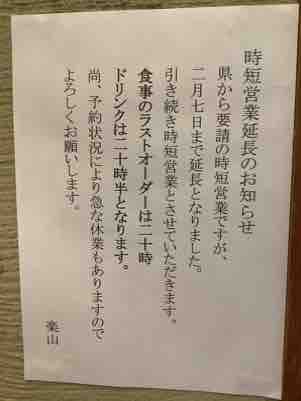 時短営業延長のお知らせ
県から要請の時短営業ですが、
二月七日まで延長となりました。
引き続き時短営業とさせていただきます。
食事のラストオーダーは二十時
ドリンクは二十時半となります。
尚、予約状況により急な休業もありますので
よろしくお願いします。
楽山